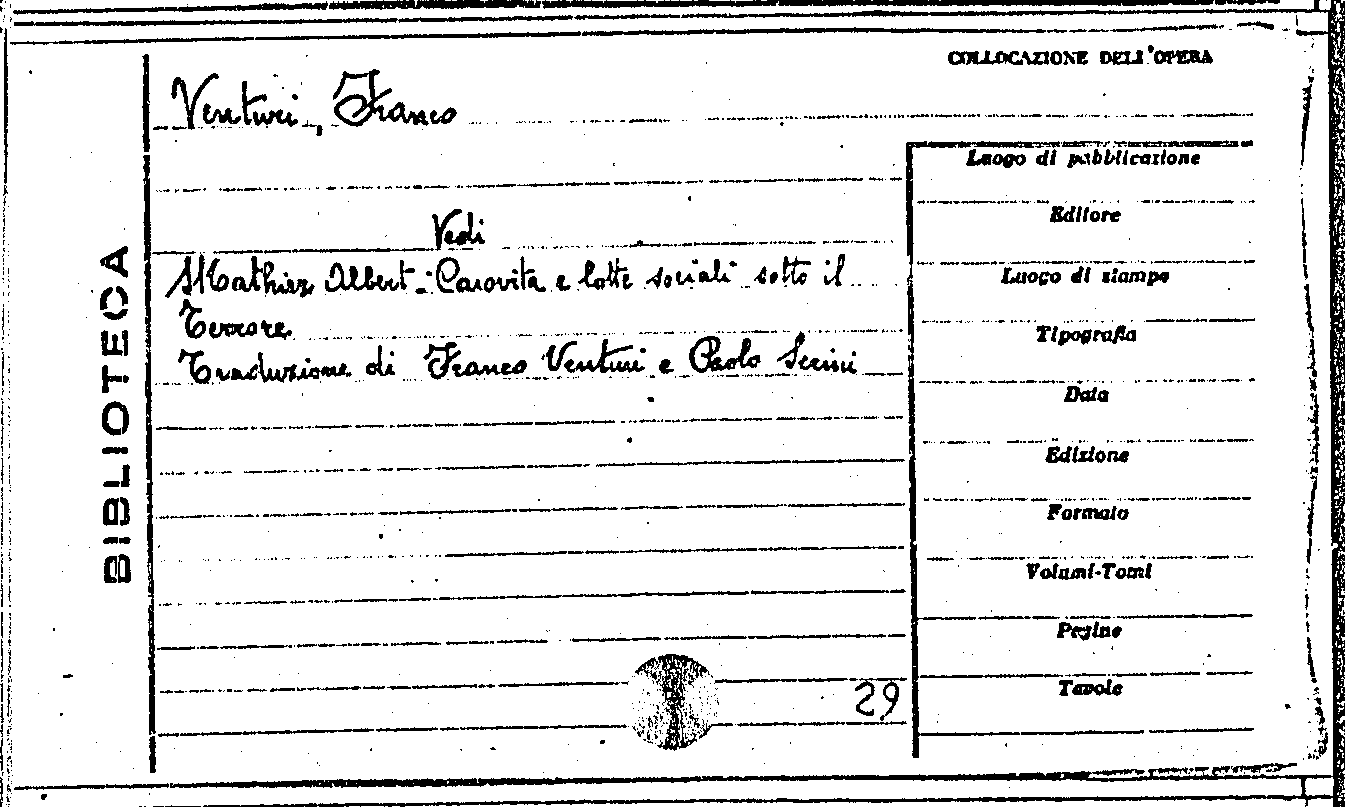 COLLOCAZIONE DELL'OPERA
Venturi, Franco
Vedi
Mathiez Albert - Carovita e lotte sociali sotto il
Terrore
Traduzione di Franco Venturi e Paolo Serini
29
BIBLIOTECA
Luogo di pubblicazione
Editore
Luogo di stampa
Tipografia
Data
Edizione
Formato
Volumi-Tomi
Pagine
Tavole